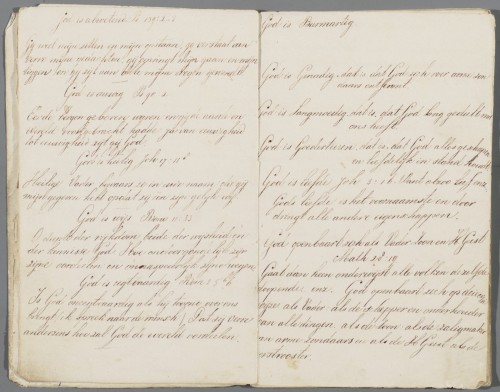 God is alwetend Ps 139: 1-6
Gij weet mijn zitten en mijn opstaan; gij verstaat van
verre mijne gedachten; gij omringt mijn gaan en mijn
liggen en gij zijt aan alle mijne wegen gewend
God is eeuwig Ps 90: 2
Eer de bergen geboren waren en gij de aarde en de
wereld voortgebracht hadde, ja van eeuwigheid
tot eeuwigheid zijt gij God.
God is heilig Joh 17: 11
Heilige Vader bewaar ze in uwen naam die gij
mij gegeven hebt opdat zij een zijn gelijk wij
God is wijs Rom 11: 33
O diepte der rijkdom beide der wijsheid en
der kennisse Gods Hoe ondoorzoekelijk zijn
zijne oordeelen en onnaspeurlijk zijne wegen
God is regtvaardig Rom 3: 5
Is God onregtvaardig als hij toorn over ons
brengt ik spreek naar de mensch; Dat zij verre
anderzins hoe zal God de wereld oordeelen.
God is Barmartig
God is Genadig, dat is, dat God zich over arme
God is Langmoedig, dat is, dat God lang geduld met
ons heeft.
God is Goedertieren, dat is, dat God alles geschapen
en liefderijk in stand houdt
God is liefde Joh 3: 16. Want alzoo lief enz
Gods liefde is het voornaamste en door
dringt alle andere eigenschappen.
God openbaart zich als Vader, Zoon en H. Geest
Math 28: 19
Gaat dan heen onderwijst alle volken dezelve
doopende enz. God openbaart zich
als Vader als de Schepper en onderhouder
van alle dingen, als de Zoon als de zaligmaker
van arme zondaars en als de H Geest als de